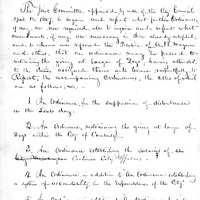 The Joint Committee appointed by vote of the City Council
April the 27th, to inquire and report what further Ordinances,
if any, are now required, also to inquire and report what
amendments, if any, are necessary
and to whom was referred the Petition of
and others, that an Ordinance may be passed to
restrain the going at large of Dogs, having attended
to the duty assigned them ask leave respectfully to
Report, the accompanying Ordinances, the titles of which
are as follows, viz. —
1. An Ordinance, for the suppression of disturbances
on the Lords day.
2. An Ordinance, restraining the going at large of
Dogs within the City of
3. An Ordinance establishing the salaries of
Certain City Officers. —
4. An Ordinance in addition to an Ordinance establishing
a system of accountability in the Expenditures of the City.